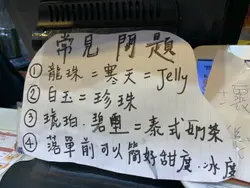 常見問題
①龍珠=寒天=Jelly
②白玉=珍珠
③琥珀.碧璽=泰式奶茶
④落單前可以簡好甜度.冰度